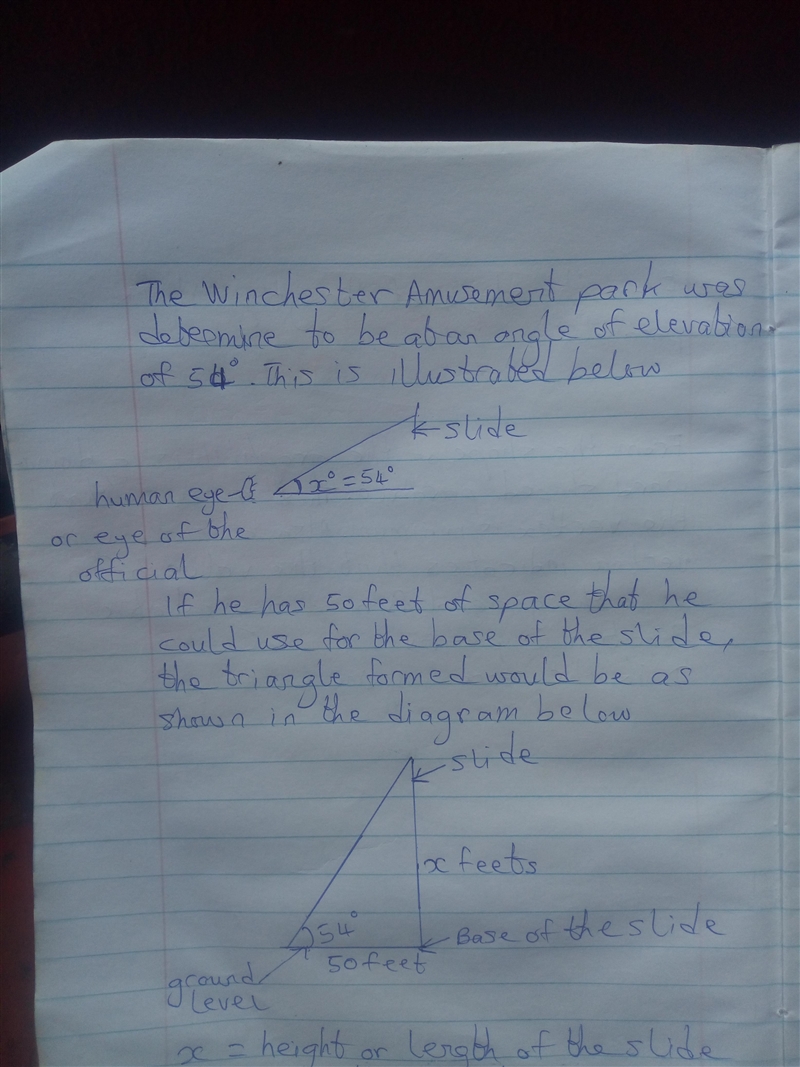 The Winchester Amusement park was
determine to be at an angle of elevation
of 54°. This is illustrated below
slide
x° = 54°
human eye
or eye of the
official
If he has 50 feet of space that he
could use for the base of the slide,
the triangle formed would be as
shown in the diagram below
slide
x feets
54°
Base of the slide
50 feet
ground
level
x = height or length of the slide